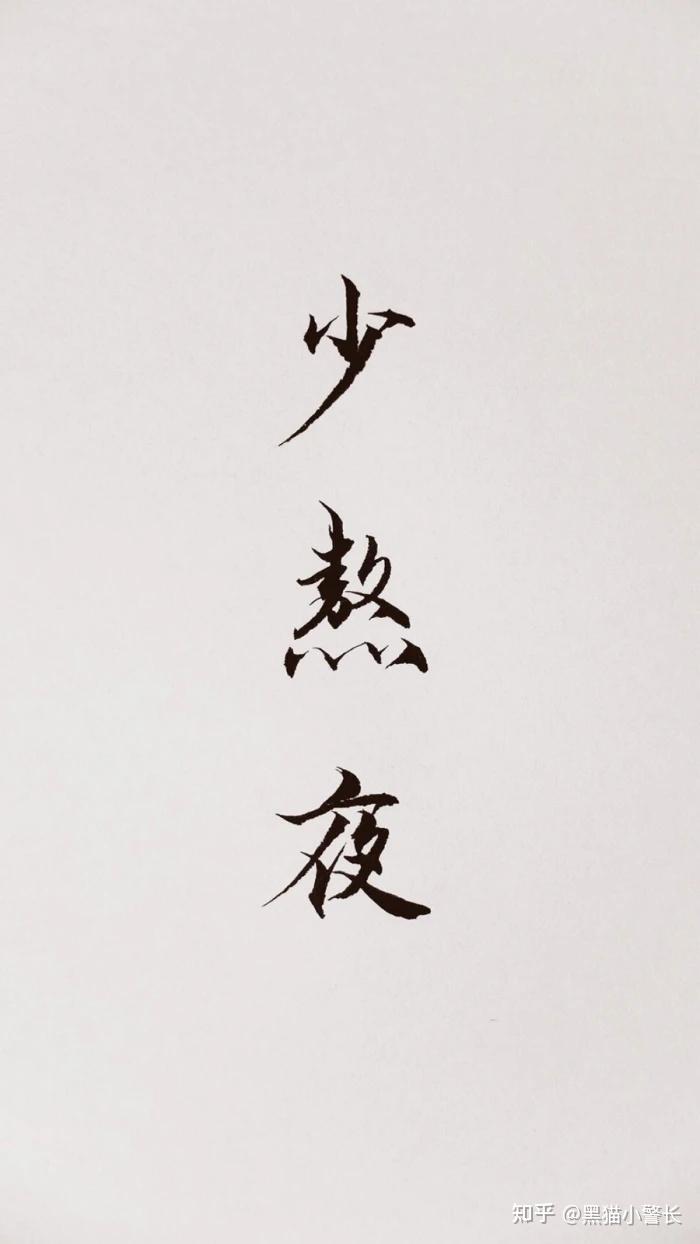 少熬夜
知乎 @黑猫小警长